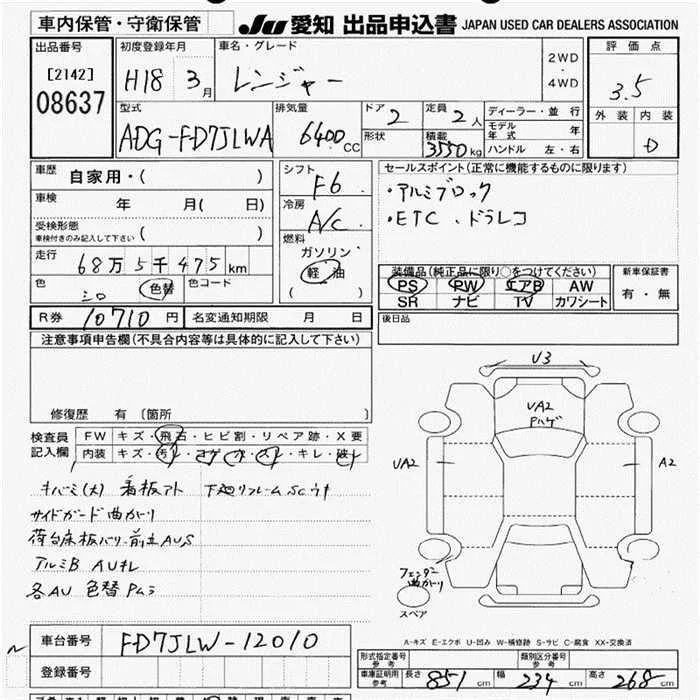 車内保管・守衛保管
JU 愛知 出品申込書 JAPAN USED CAR DEALERS ASSOCIATION
出品番号
[2142]
08637
初度登録年月
H18 3月
車名・グレード
レンジャー
2WD
・
4WD
評価点
3.5
外装 内装
D
型式
ADG-FD7JLWA
排気量
6400cc
ドア 2
形状
定員 2人
積載 3550kg
ディーラー・並行
モデル年式 年
ハンドル 左・右
車歴 自家用・( )
車検 年 月( 日)
受検形態
車検付きのみ記入して下さい ( )
走行 68万5千475km
色 シロ 色替 色コード
シフト F6
冷房 A/C
燃料
ガソリン
軽油
( )
セールスポイント(正常に機能するものに限ります)
・アルミブロック
・ETC、ドラレコ
装備品(純正品に限り○をつけてください)
PS PW エアB AW
SR ナビ TV カワシート
新車保証書
有・無
R券 10710円 名変通知期限 月 日
後日品
注意事項申告欄(不具合内容等は具体的に記入して下さい)
修復歴 有 [箇所 ]
検査員記入欄
FW キズ・飛石・ヒビ割・リペア跡・X要
内装 キズ・汚れ・コゲ・穴・スレ・キレ・破レ
キバミ(大) 看板アト 下廻リフレームSCサ
サイドガード曲がり
荷台床板バリ 前立AUS
アルミB AUキレ
各AU 色替Pムラ
車台番号 FD7JLW-12010
登録番号
U3
UA2
Pハゲ
UA2
A2
フェンダー
曲がり
スペア
A-キズ E-エクボ U-凹み W-補修跡 S-サビ C-腐食 XX-交換済
形式指定番号 参考
類別区分番号 参考
車庫証明用 参考 長さ 851cm 幅 234cm 高さ 268cm